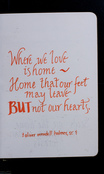 Where we love
is home ~
Home that our feet
may leave
BUT not our hearts.